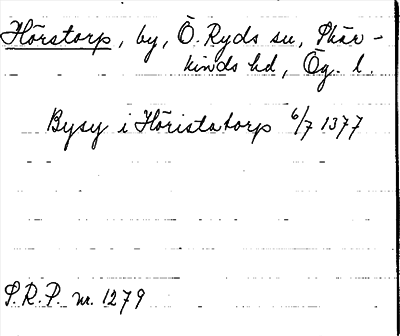 Hörstorp, by, Ö. Ryds sn, Skär-
kinds hd, Ög. l.
Bysy i Höristatorp 6/7 1377
S.R.P. nr. 1279